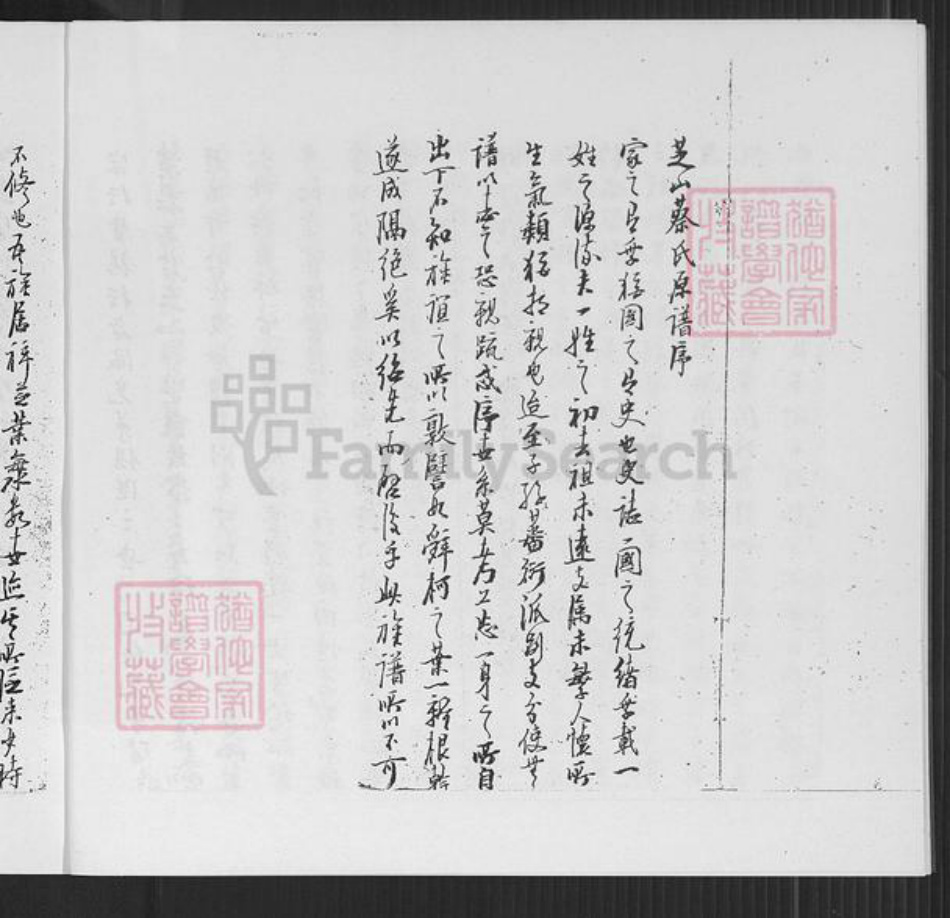 芝山蔡氏原譜序
家之有譜猶國之有史也史誌一國之統緒譜載一
姓之源流夫一姓之初去祖未遠支属未繁人懷所
生氣類猶相親也迨至子孫蕃衍派别支分使無
譜以志之恐親疏惑序世系莫考上忘一身之所自
出下不知族誼之所以敦譬如辭柯之葉一辭根幹
遂成隔絶奚以紹先而啓後乎此族譜所以不可
不修也吾族居 之葉 世 所 未 時
猶他家
譜學會
收藏
猶他家
譜學會
收藏
FamilySearch